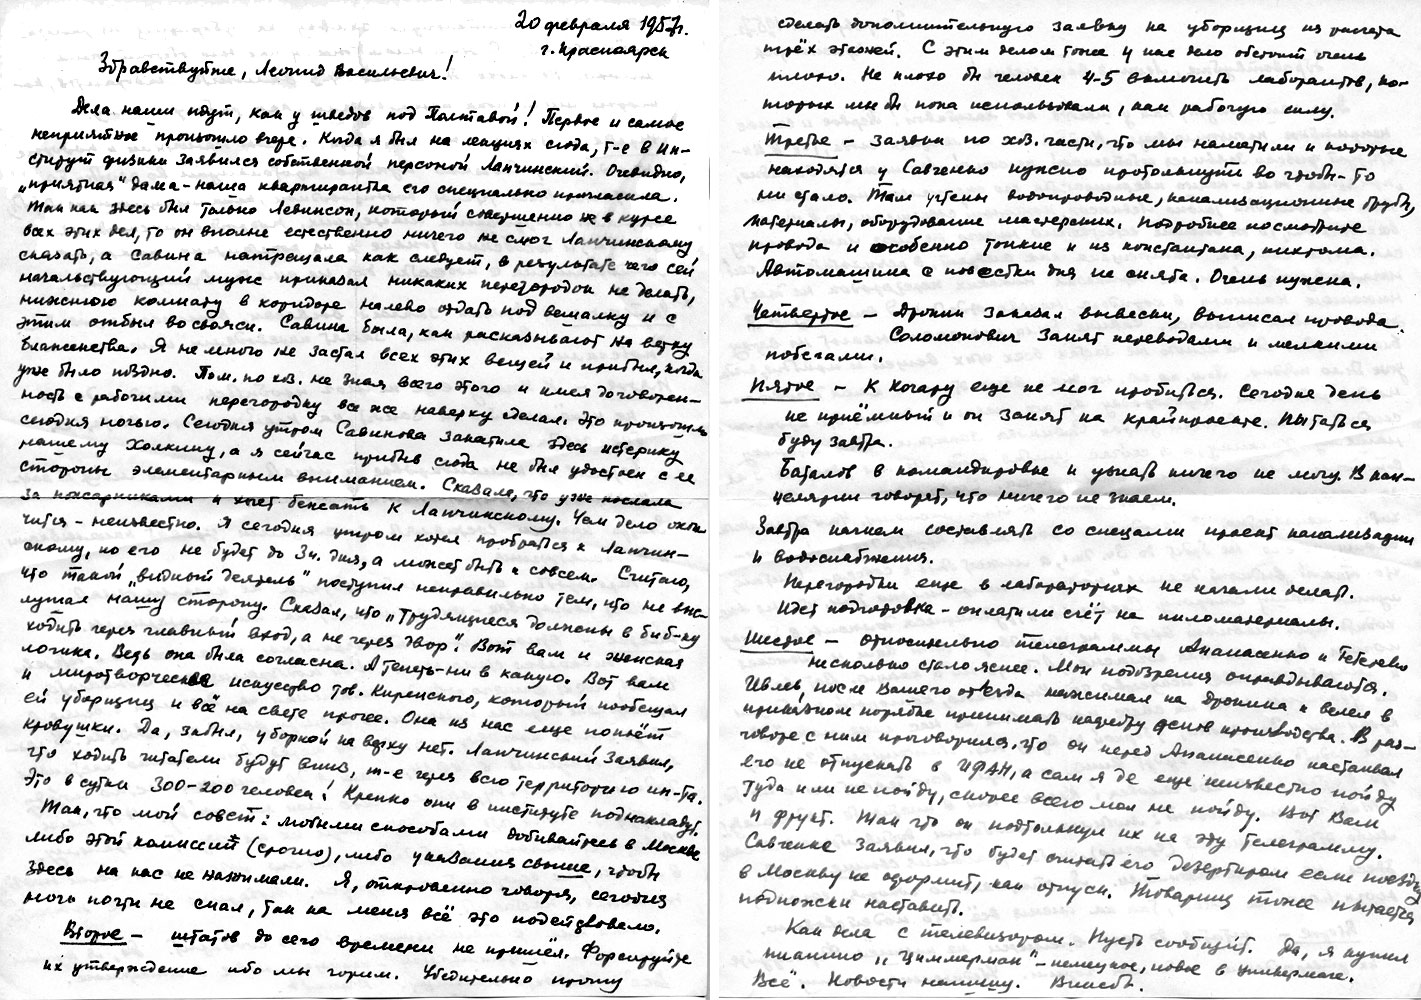 20 февраля 1957г.
г. Красноярск
Здравствуйте, Леонид Васильевич!
Дела наши идут, как у шведов под Полтавой! Первое и самое
неприятное произошло вчера. Когда я был на лекциях сюда, т-е в ин-
ститут физики заявился собственной персоной Лапчинский. Очевидно,
„приятная" дама - наша квартирантка его специально пригласила.
Так как здесь был только Левинсон, который совершенно не в курсе
всех этих дел, то он вполне естественно ничего не смог Лапчинскому
сказать, а Савина натрещала как следует, в результате чего сей
начальствующий муж приказал никаких перегородок не делать,
нижнюю комнату в коридоре налево отдать под вешалку и с
этим отбыл восвояси. Савина была, как рассказывают на верху
блаженства. Я не много не застал всех этих вещей и прибыл, когда
уже было поздно. Пом. по хоз. не зная всего этого и имея договорен-
ность с рабочими перегородку все же наверху сделал. Это произошло
сегодня ночью. Сегодня утром Савинова закатила здесь истерику
нашему Холкину, а я сейчас прибыв сюда не был удостоен с ее
стороны элементарным вниманием. Сказала, что уже послала
за пожарниками и хочет бежать к Лапчинскому. Чем дело окон-
чится - неизвестно. Я сегодня утром хотел пробраться к Лапчин-
скому, но его не будет до 3ч. дня, а может быть и совсем. Считаю,
что такой „видный деятель" поступил неправильно тем, что не выс-
лушал нашу сторону. Сказал, что „Трудящиеся должны в биб-ку
ходить через главный вход, а не через двор". Вот вам и женская
логика. Ведь она была согласна. А теперь - ни в какую. Вот вам
и миротворческое искусство тов. Киренского, который пообещал
ей уборщиц и всё на свете прочее. Она из нас еще попьёт
кровушки. Да, забыл, уборной на верху нет. Лапчинский заявил,
что ходить читатели будут вниз, т-е через всю территорию ин-та.
Это в сутки 300-200 человек! Крепко они в институте поднакладут.
Так, что мой совет: любыми способами добивайтесь в Москве
либо этой комиссии (срочно), либо указания свыше, чтобы
здесь на нас не нажимали. Я, откровенно говоря, сегодня
ночь почти не спал, так на меня всё это подействовало.
Второе - штатов до сего времени не пришёл. Форсируйте
их утверждение ибо мы горим. Убедительно прошу
сделать дополнительную заявку на уборщиц из расчета
трёх этажей. С этим делом тоже у нас дело обстоит очень
плохо. Не плохо бы человек 4-5 включить лаборантов, ко-
торых мы бы пока использовали, как рабочую силу.
Третье - Заявки по хоз. части, что мы наметили и которые
находятся у Савченко нужно протолкнуть во чтобы-то
ни стало. Там учтены водопроводные, канализационные трубы,
материалы, оборудование мастерских. Подробнее посмотрите
провода и особенно тонкие и из константана, нихрома.
Автомашина с повестки дня не снята. Очень нужна.
Четвертое - Дрокин заказал вывески, выписал провода.
Соломонович занят переводами и мелкими
побегами.
Пятое - К Когару еще не мог пробиться. Сегодня день
не приёмный и он занят на крайпроекте. Пытаться
буду завтра.
Баталов в командировке и узнать ничего не могу. В кан-
целярии говорят, что ничего не знаем.
Завтра начнем составлять со спецами проект канализации
и водоснабжения.
Перегородки еще в лабораториях не начали делать.
Идет подготовка - оплатили счёт на пиломатериалы.
Шестое - относительно телеграммы Апанасенко и Тетерево
несколько стало яснее. Мои подозрения оправдываются.
Ивлев, после Вашего отъезда нажимал на Дрокина и велел в
приказном порядке принимать кафедру основ производства. В раз-
говоре с ним проговорился, что он перед Апанасенко настаивал
его не отпускать в ИФАН, а сам я де еще неизвестно пойду
туда или не пойду, скорее всего мол не пойду. Вот Вам
и фрукт. Так что он подтолкнул их на эту телеграмму.
Савченке заявил, что будет считать его дезертиром если поездку
в Москву не оформит, как отпуск. Товарищ тоже пытается
подножки наставить.
Как дела с телевизором. Пусть сообщит. Да, я купил
пианино „Циммерман" - немецкое, новое в универмаге.
Всё. Новости напишу. Вилесов.